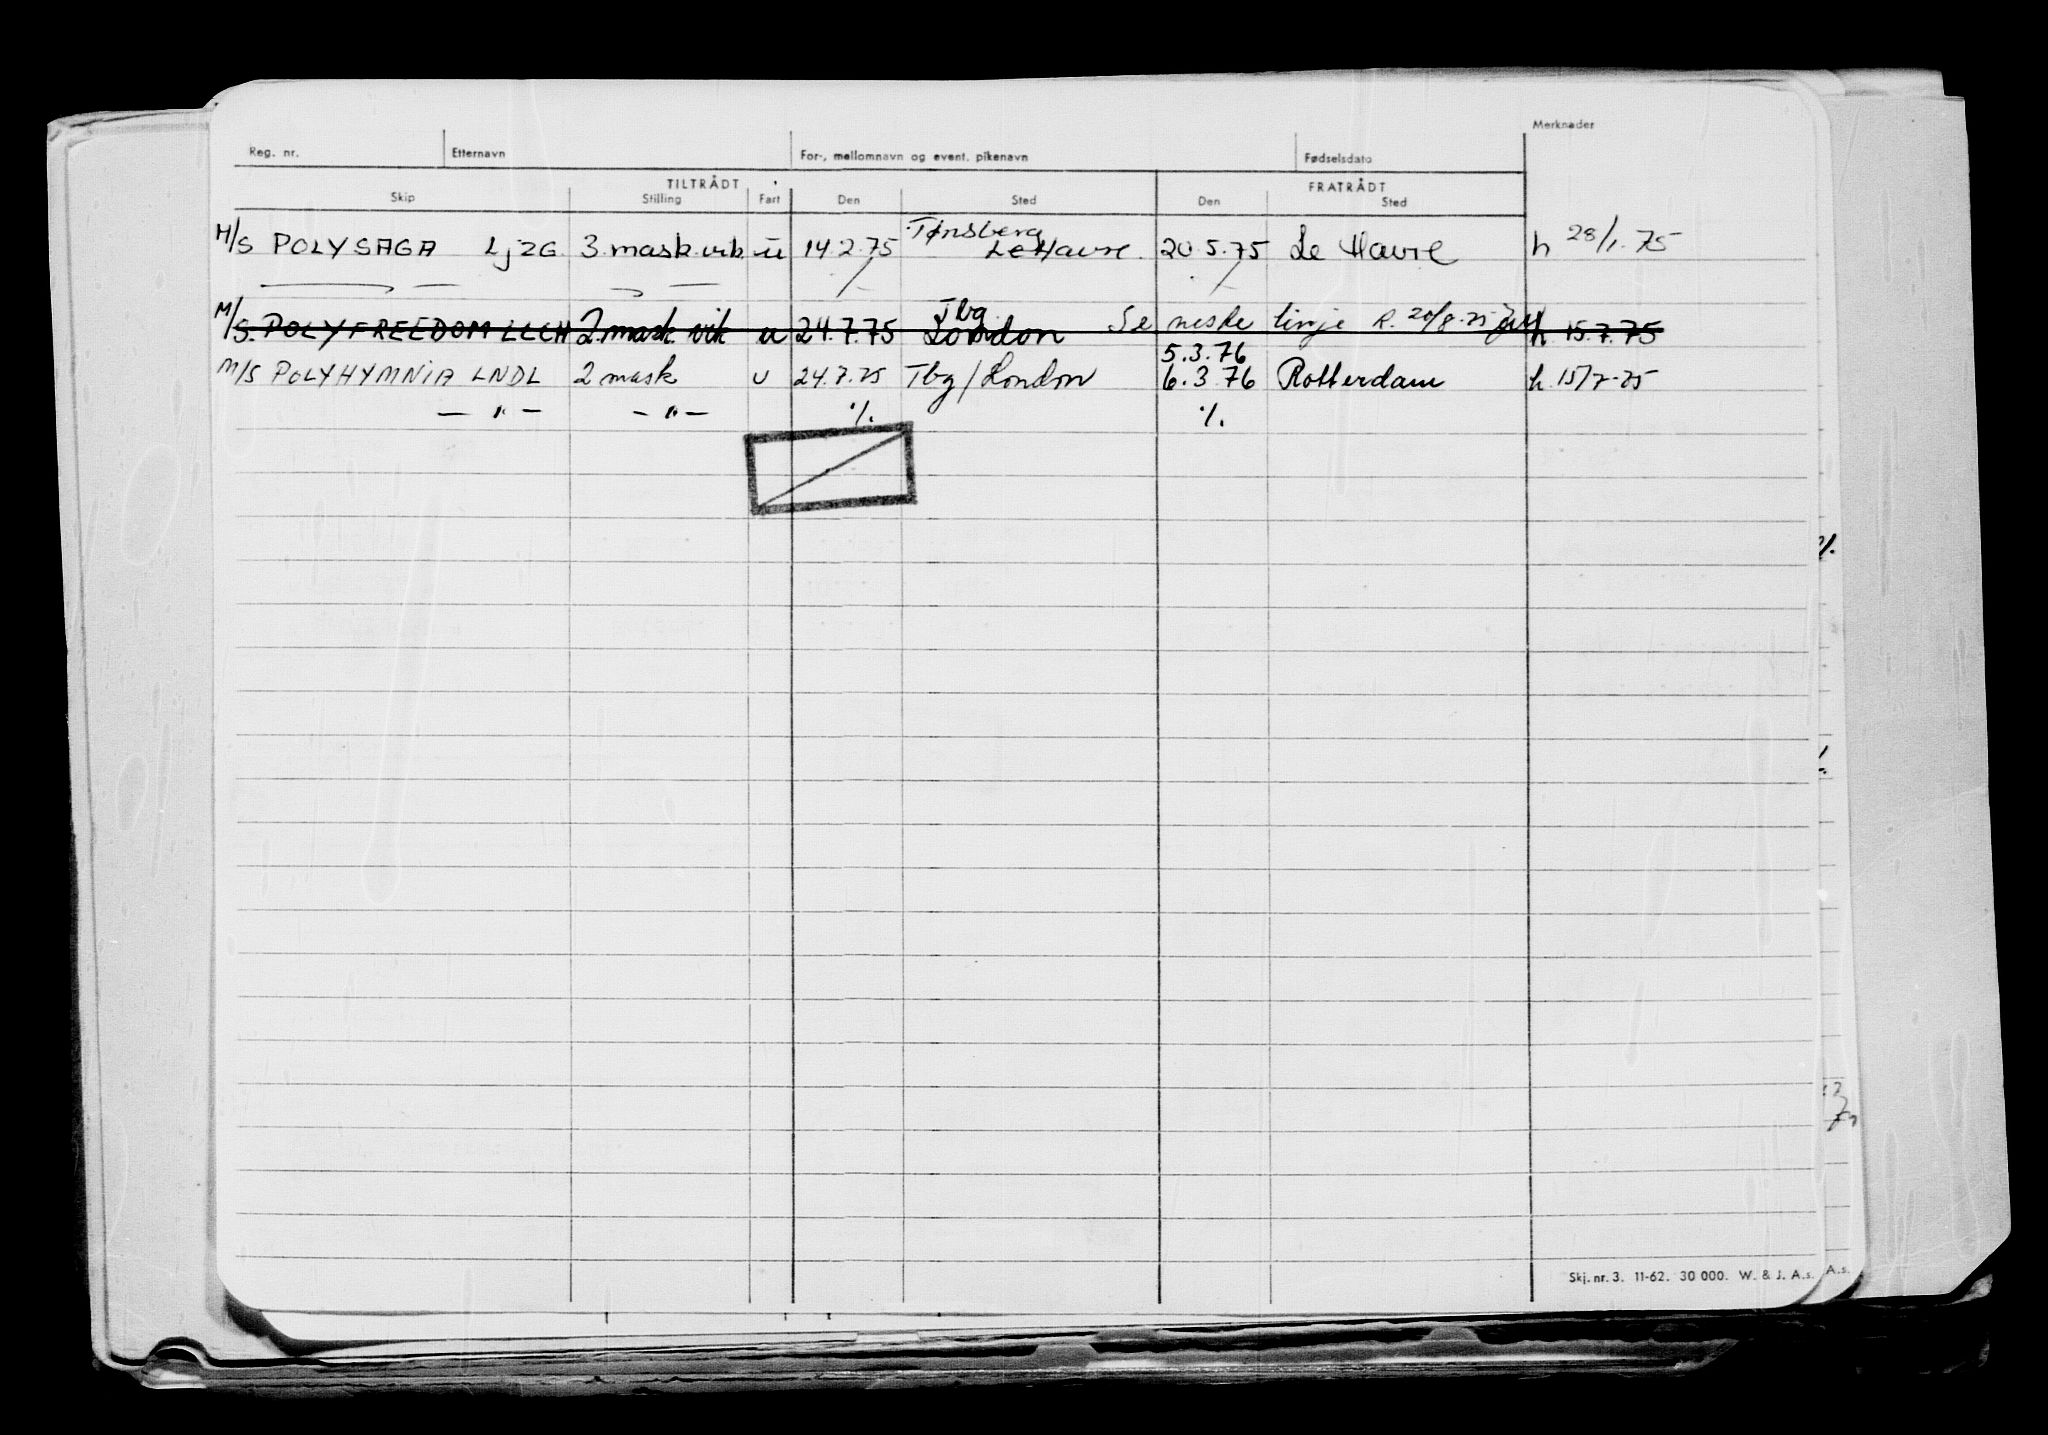 Merknader
Reg. nr. Etternavn For-, mellomnavn og event. pikenavn Fødselsdato
TILTRÅDT FRATRÅDT
Skip Stilling Fart Den Sted Den Sted
Tønsberg
M/S POLYSAGA LJZG 3. mask. vik u 14.2.75 Le Havre 20.5.75 Le Havre h 28/1.75
Tbg
M/S. POLYFREEDOM LLCH 2. mask. vik u 24.7.75 London Se neste linje R. 20/8-75 h 15.7.75
5.3.76
M/S POLYHYMNIA LNDL 2 mask u 24.7.75 Tbg/London 6.3.76 Rotterdam h. 15/7-75
— " — — " — ./. ./.
Skj. nr. 3. 11-62. 30 000. W. & J. A.s. A.s.